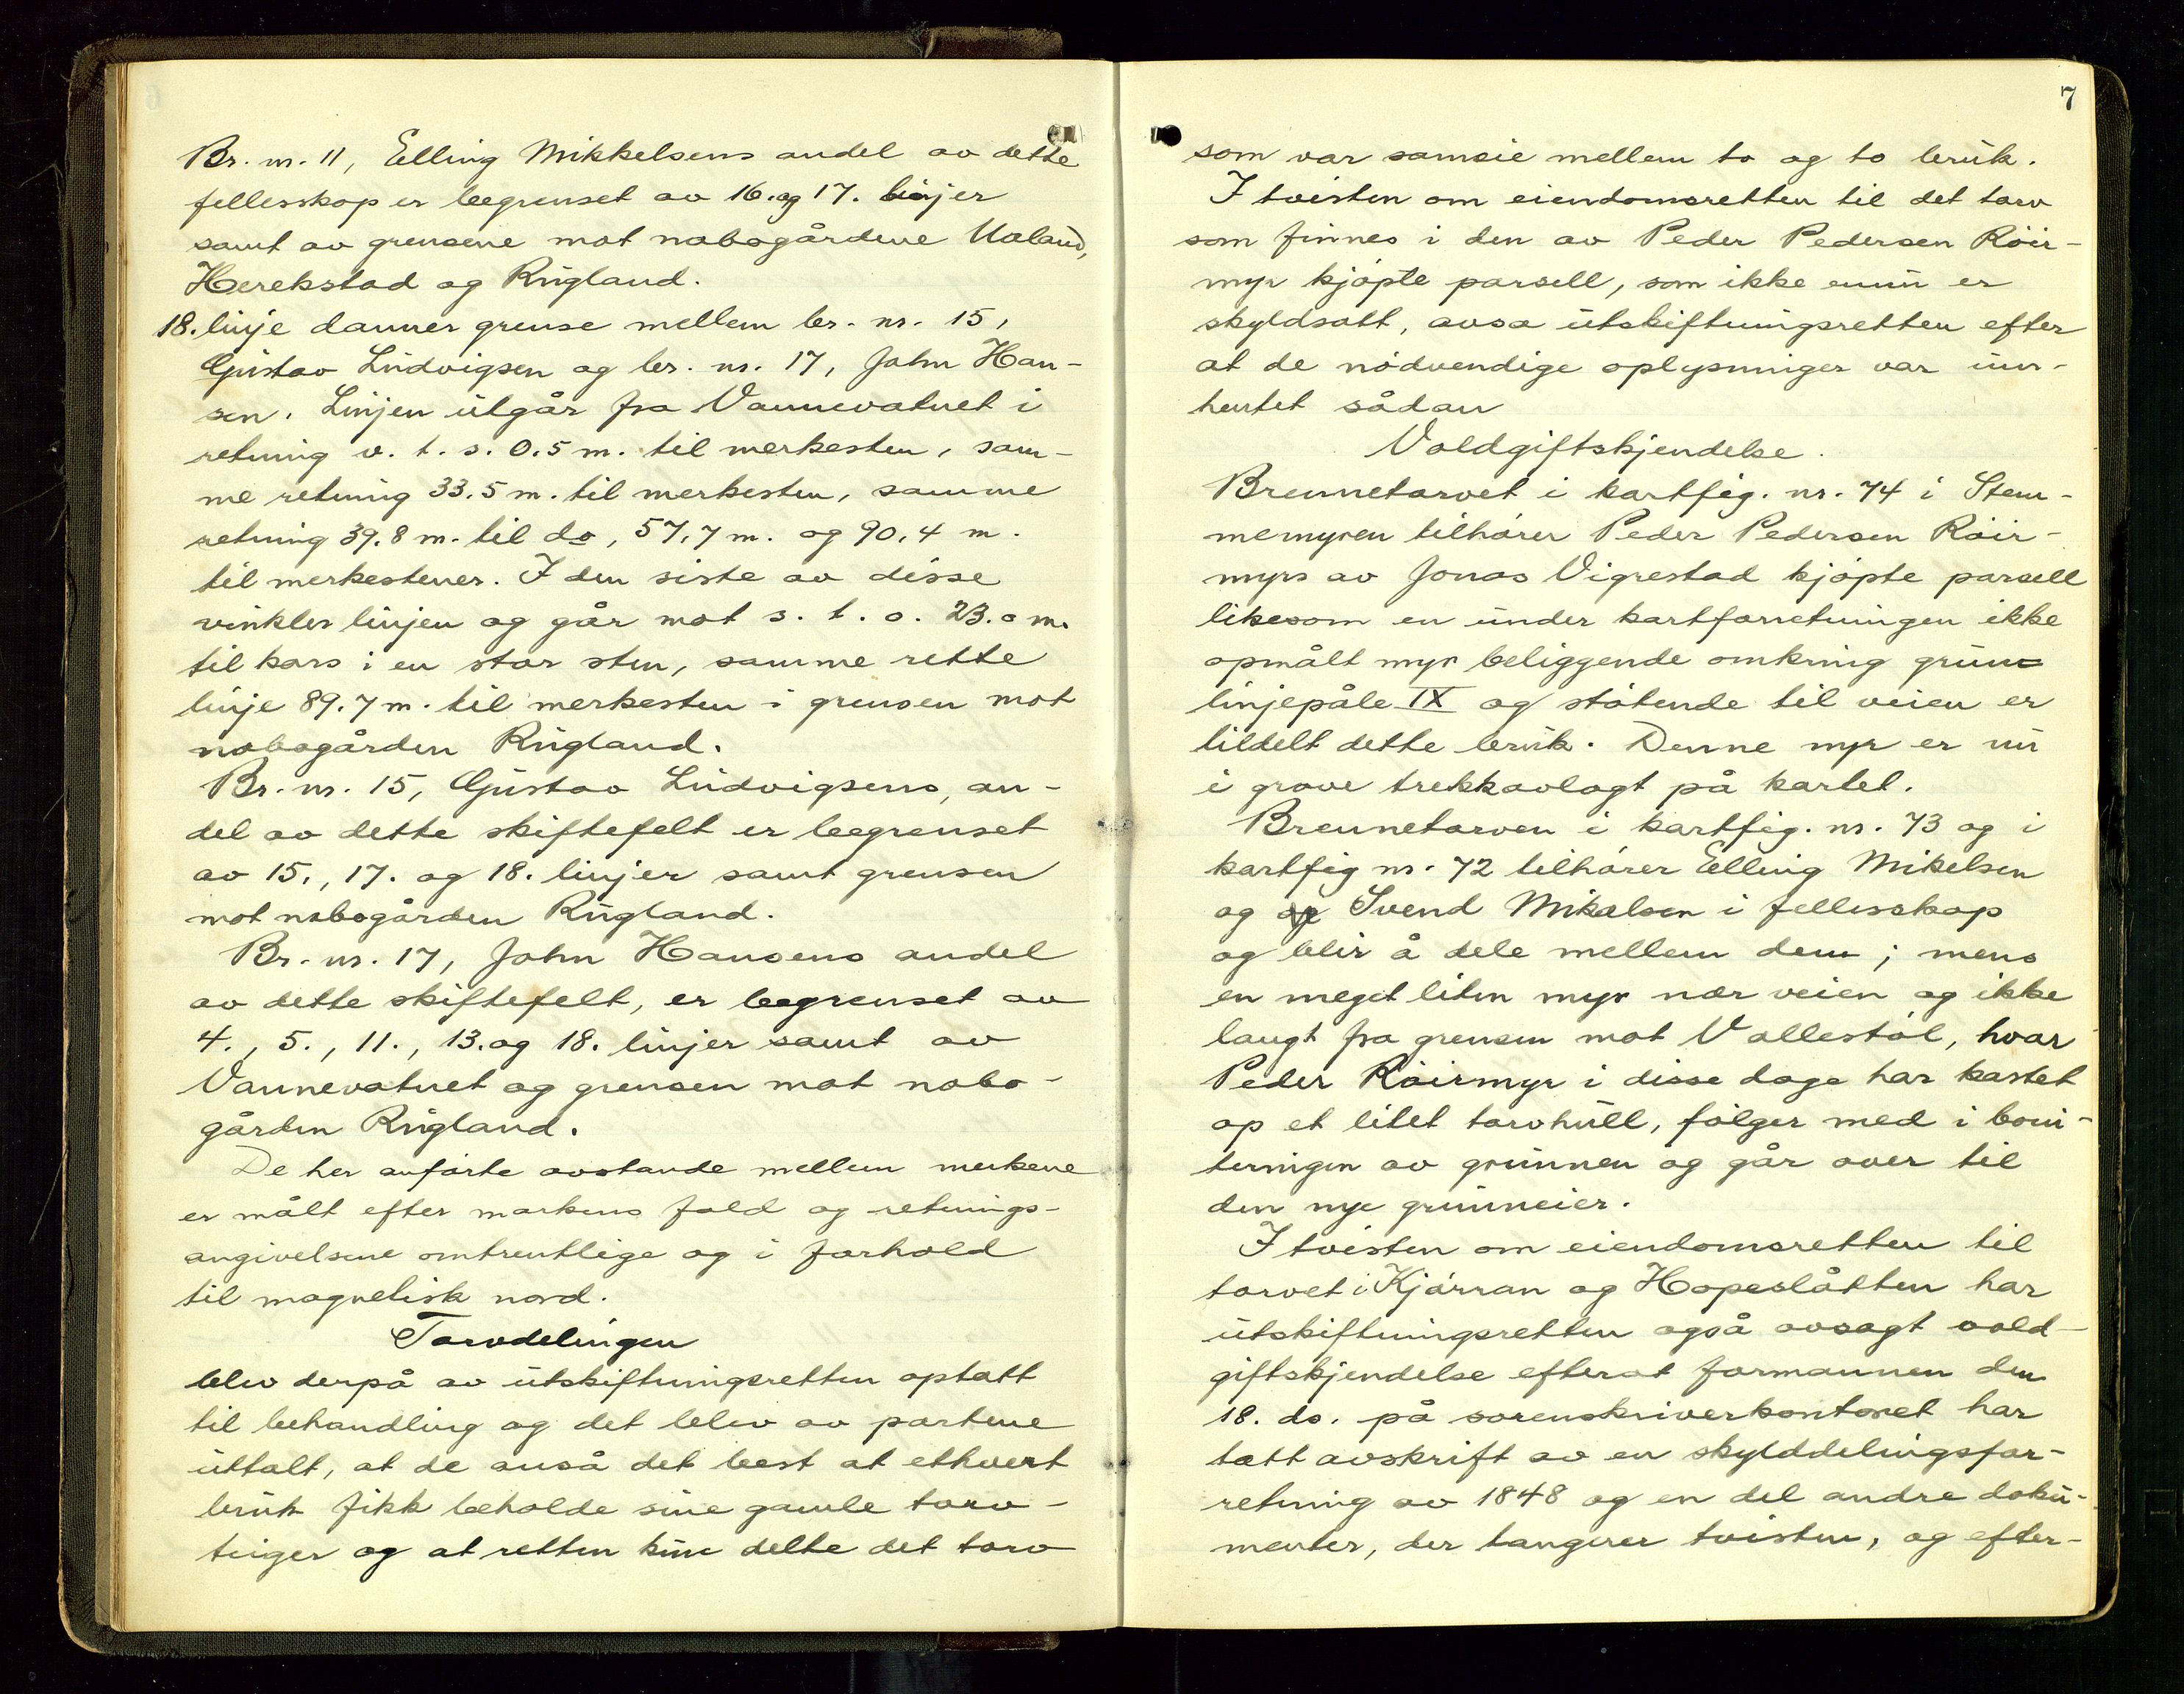 Br. nr. 11, Elling Mikkelsens andel av dette
fellesskap er begrenset av 16. og 17. linjer
samt av grensene mot nabogårdene Ualand,
Herekstad og Rugland.
18. linje danner grense mellem br. nr. 15,
Gustav Ludvigsen og br. nr. 17, John Han-
sen. Linjen utgår fra Vannevatnet i
retning v. t. s. 0.5 m. til merkesten, sam-
me retning 33.5 m. til merkesten, samme
retning 39.8 m. til do, 57,7 m. og 90,4 m.
til merkestener. I den siste av disse
vinkler linjen og går mot s. t. o. 23.0 m.
til kors i en stor sten, samme rette
linje 89.7 m. til merkesten i grensen mot
nabogården Rugland.
Br. nr. 15, Gustav Ludvigsens, an-
del av dette skiftefelt er begrenset
av 15., 17. og 18. linjer samt grensen
mot nabogården Rugland.
Br. nr. 17, John Hansens andel
av dette skiftefelt, er begrenset av
4., 5., 11., 13. og 18. linjer samt av
Vannevatnet og grensen mot nabo-
gården Rugland.
De her anførte avstande mellem merkene
er målt efter markens fald og retnings-
angivelsene omtrentlige og i forhold
til magnetisk nord.
Torvdelingen
blev derpå av utskiftningsretten optatt
til behandling og det blev av partene
uttalt, at de anså det best at ethvert
bruk fikk beholde sine gamle torv-
teiger og at retten kun delte det torv
7
som var sameie mellem to og to bruk.
I tvisten om eiendomsretten til det torv
som finnes i den av Peder Pedersen Röir-
myr kjøpte parsell, som ikke ennu er
skyldsatt, avsa utskiftningsretten efter
at de nødvendige oplysninger var inn-
hentet sådan
Voldgiftskjendelse.
Brennetorvet i kartfig. nr. 74 i Stem-
memyren tilhører Peder Pedersen Röir-
myrs av Jonas Vigrestad kjøpte parsell
likesom en under kartforretningen ikke
opmålt myr beliggende omkring grunn-
linjepåle IX og støtende til veien er
tildelt dette bruk. Denne myr er nu
i grove trekk avlagt på kartet.
Brennetorven i kartfig. nr. 73 og i
kartfig nr. 72 tilhører Elling Mikelsen
og og Svend Mikalsen i fellesskap
og blir å dele mellem dem; mens
en meget liten myr nær veien og ikke
langt fra grensen mot Vollestøl, hvor
Peder Röirmyr i disse dage har kastet
op et litet torvhull, følger med i boni-
teringen av grunnen og går over til
den nye grunneier.
I tvisten om eiendomsretten til
torvet i Kjørran og Hopeslåtten har
utskiftningsretten også avsagt vold-
giftskjendelse efterat formannen den
18. ds. på sorenskriverkontoret har
tatt avskrift av en skylddelingsfor-
retning av 1848 og en del andre doku-
menter, der tangerer tvisten, og efter-